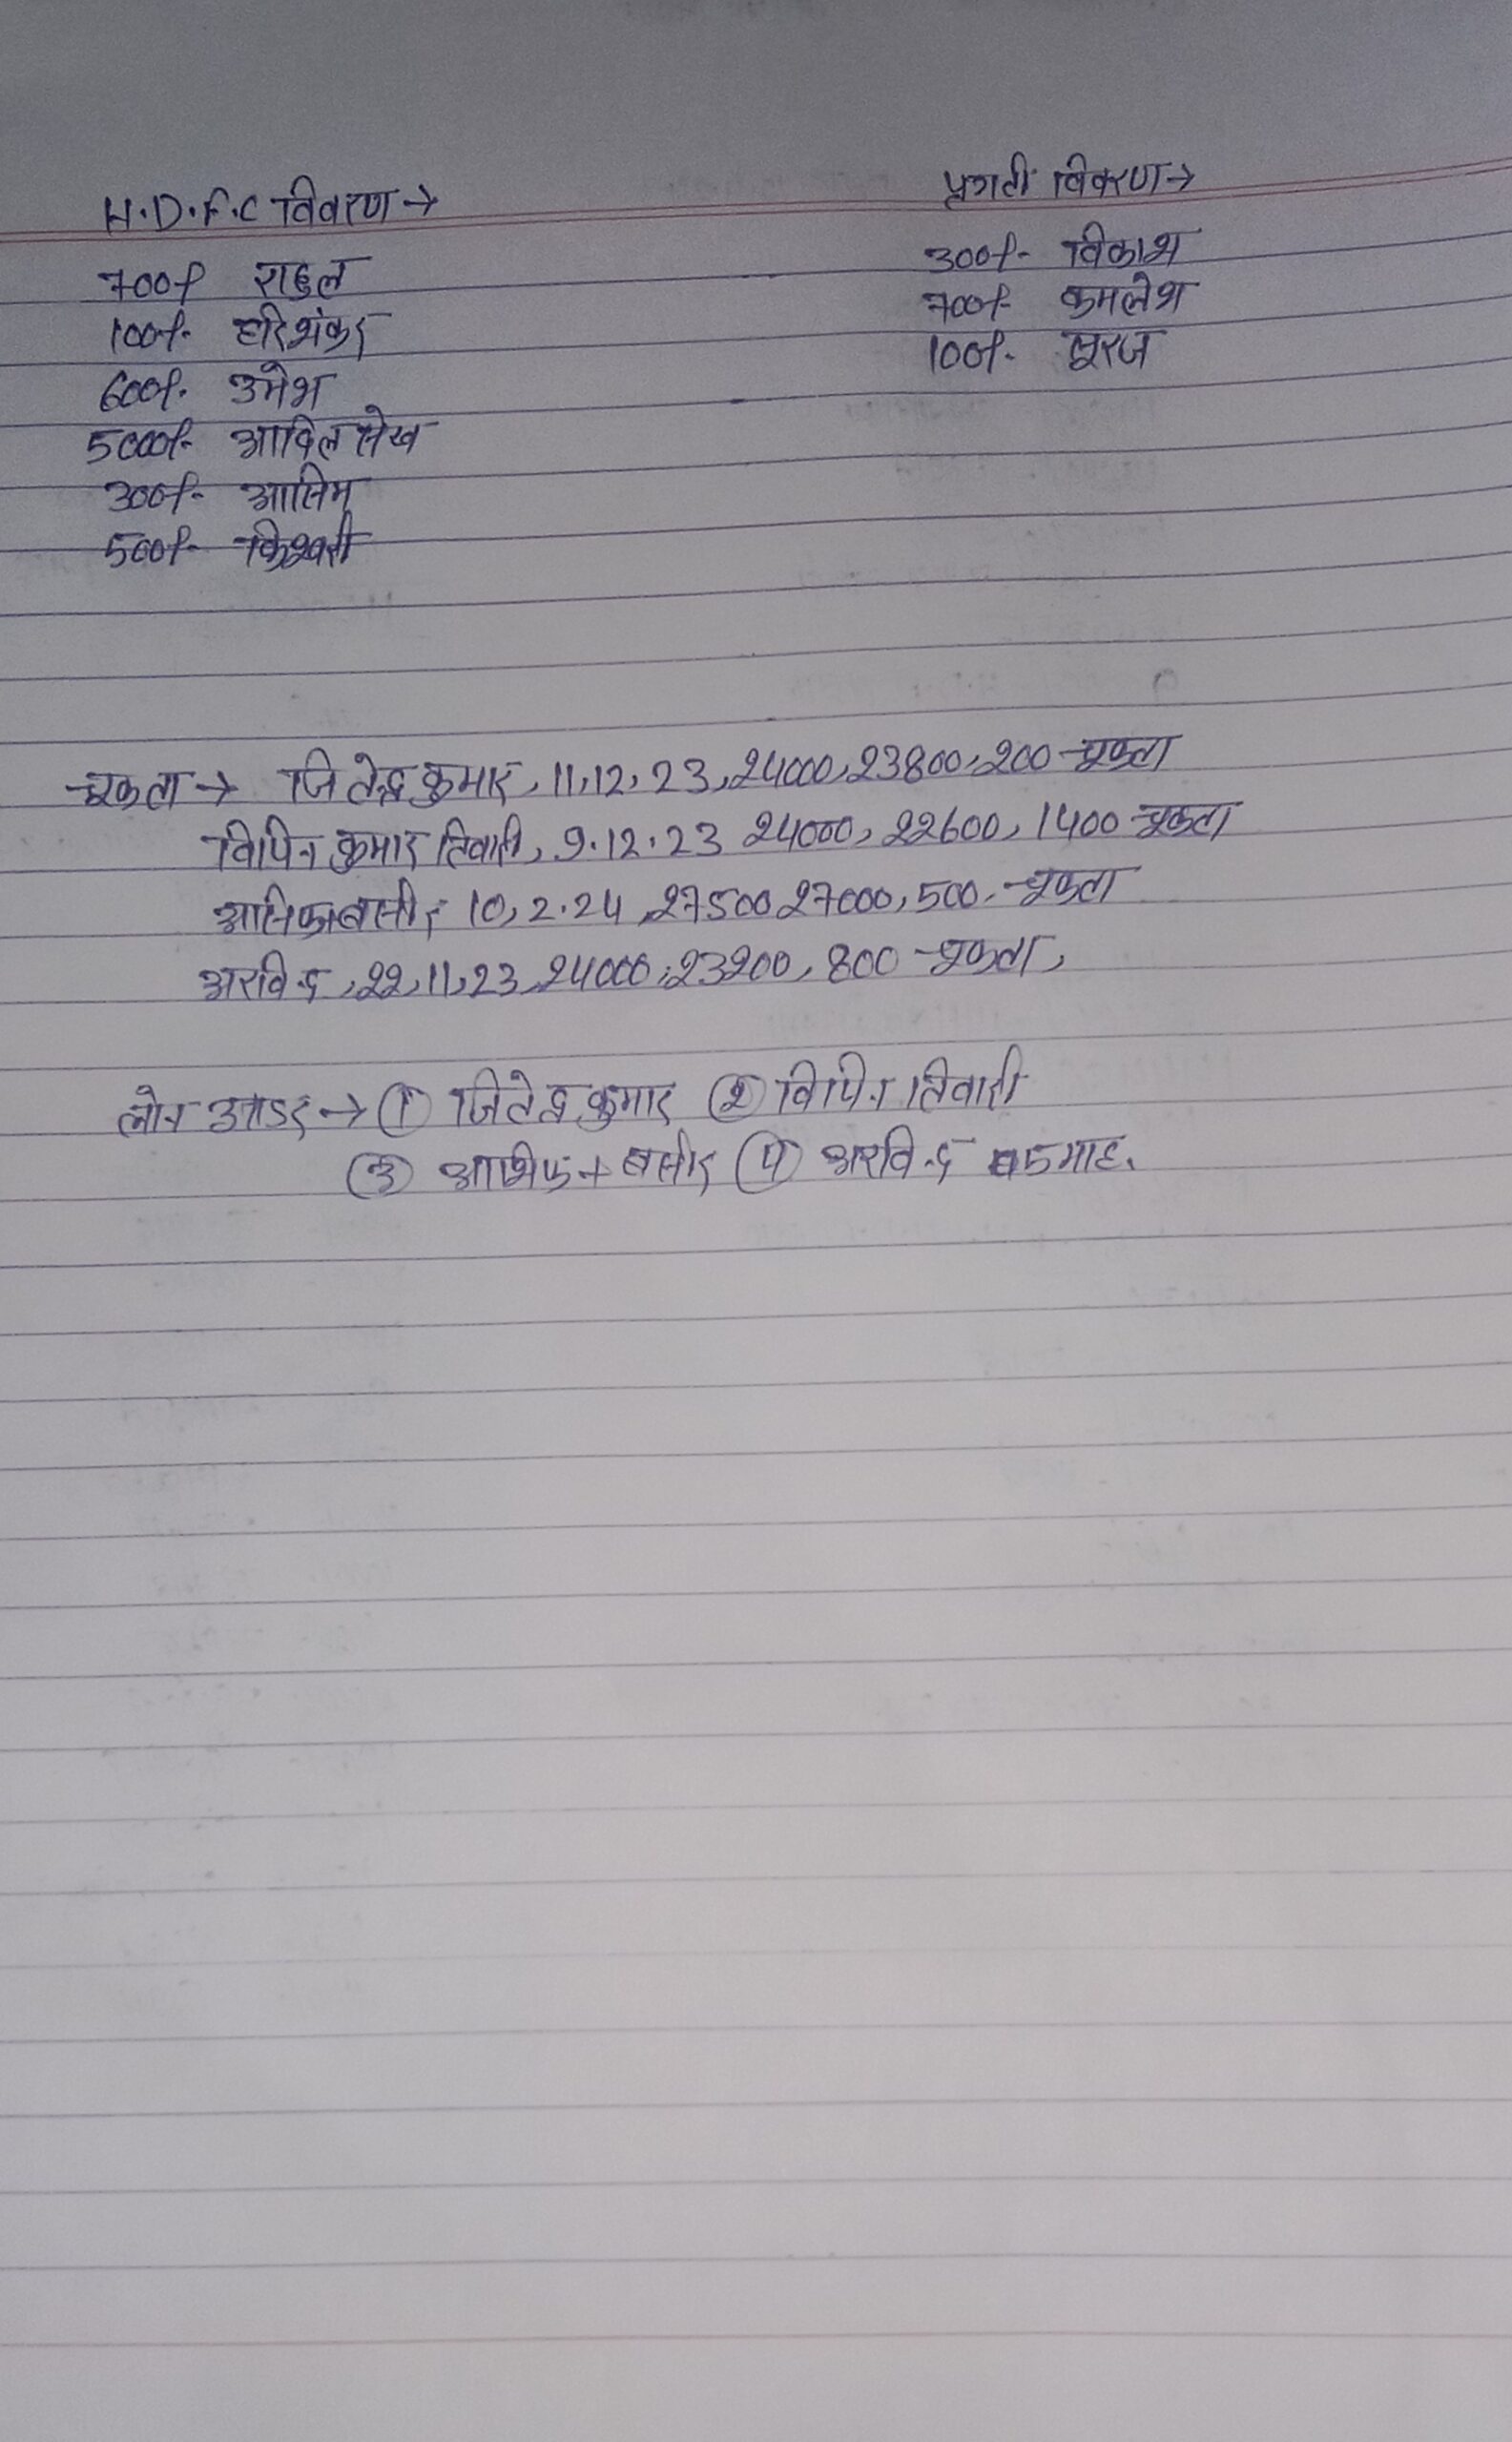 H.D.F.C विवरण →
700/- राहुल
100/- हरिशंकर
600/- उमेश
5000/- आदिल सेख
300/- आसिम
500/-
प्रगती विवरण →
300/- विकाश
700/- कमलेश
100/- सूरज
चुकता → जितेन्द्र कुमार, 11,12,23, 24000, 23800, 200 चुकता
विपिन कुमार तिवारी, 9.12.23 24000, 22600, 1400 चुकता
बसीर 10,2.24, 27500 27000, 500 चुकता
अरविन्द, 22,11,23, 24000, 23200, 800 चुकता,
लोन आडर → ① जितेन्द्र कुमार ② विपिन तिवारी
③ + बसीर ④ अरविन्द 5 माह.